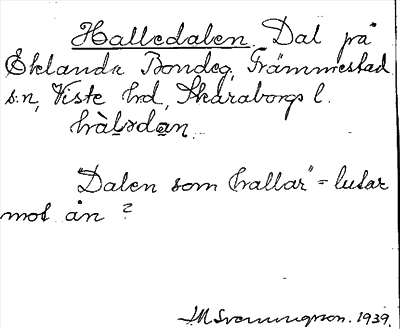 Halledalen. Dal på
Eklanda Bondeg, Främmestad
s:n, Viste hd, Skaraborgs l.
hàl̲əda̲n.
Dalen som hallar" = lutar
mot ån ?
JM Svenningson. 1939.